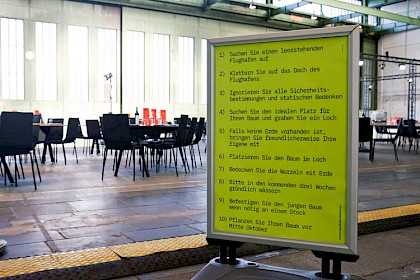 1) Suchen Sie einen leerstehenden
Flughafen auf
2) Klettern Sie auf das Dach des
Flughafens
3) Ignorieren Sie alle Sicherheits-
bestimmungen und statischen Bedenken
4) Suchen Sie den idealen Platz für
Ihren Baum und graben Sie ein Loch
5) Falls keine Erde vorhanden ist,
bringen Sie freundlicherweise Ihre
Eigene mit
6) Platzieren Sie den Baum im Loch
7) Bedecken Sie die Wurzeln mit Erde
8) Bitte in den kommenden drei Wochen
gründlich wässern
9) Befestigen Sie den jungen Baum
wenn nötig an einem Stock
10) Pflanzen Sie Ihren Baum vor
Mitte Oktober